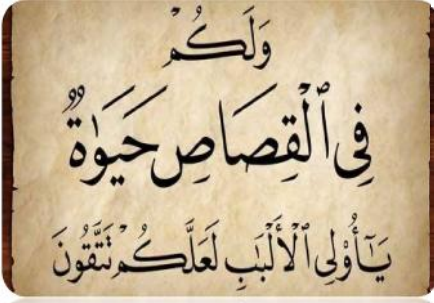 وَلَكُمْ
فِى ٱلْقِصَاصِ حَيَوٰةٌ
يَـٰٓأُو۟لِى ٱلْأَلْبَـٰبِ لَعَلَّكُمْ تَتَّقُونَ